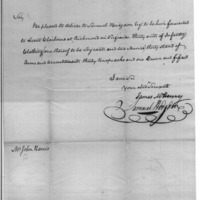 Sir,
Be pleased to deliver to Samuel Hodgdon Esqr to be forwarded
to Lieut at Richmond in Virginia Thirty suits of Infantry
Clothing one thereof to be Sergeants and one Musick thirty stand of
Arms and Accoutrements thirty Knapsacks and one Drum and fife
I am Sir
Your Obt Servant
James McHenry
Samuel Hodgdon
Mr John Harris